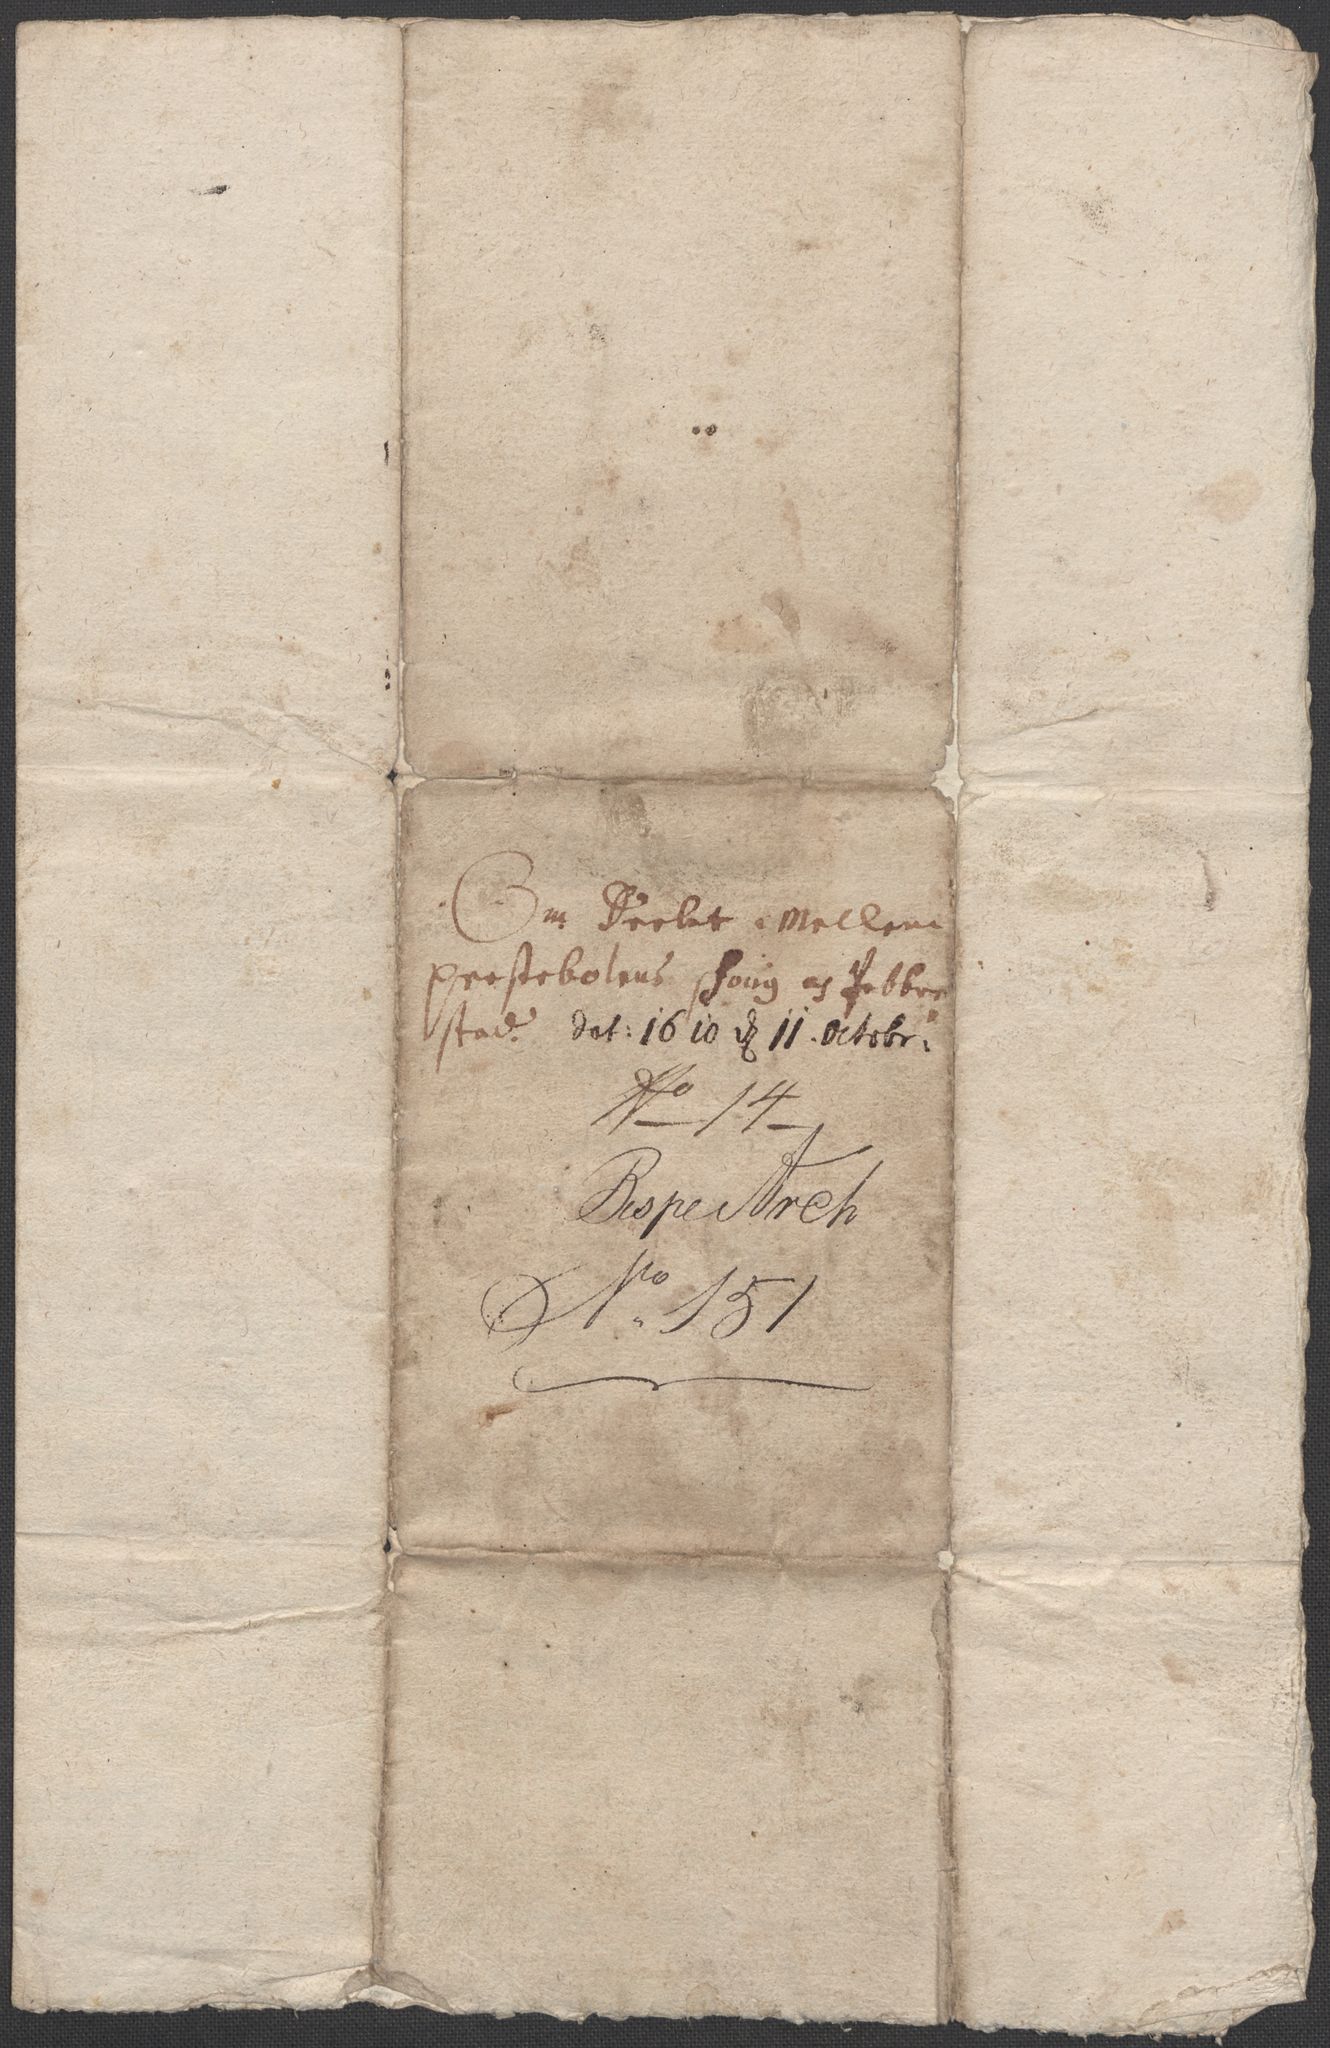 Om Deelet Mellem
prestebolens schoug og Jebber
stad. dat: 1610 d 11. Octobr:
No 14
Bispe Arch
No. 151